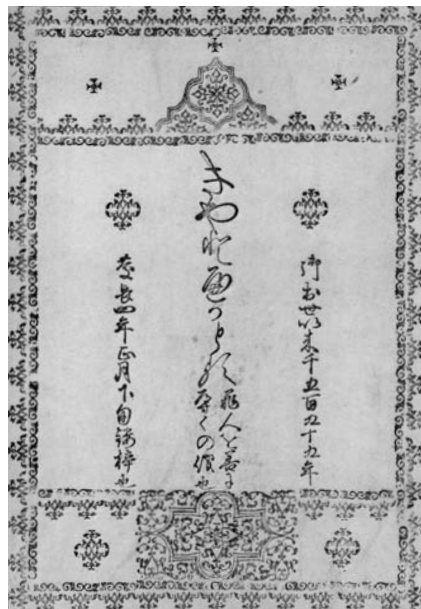 御出世以来千五百九十九年
きやとへかとる
罪人を善に
導くの儀也
慶長四年正月下旬鏤梓也